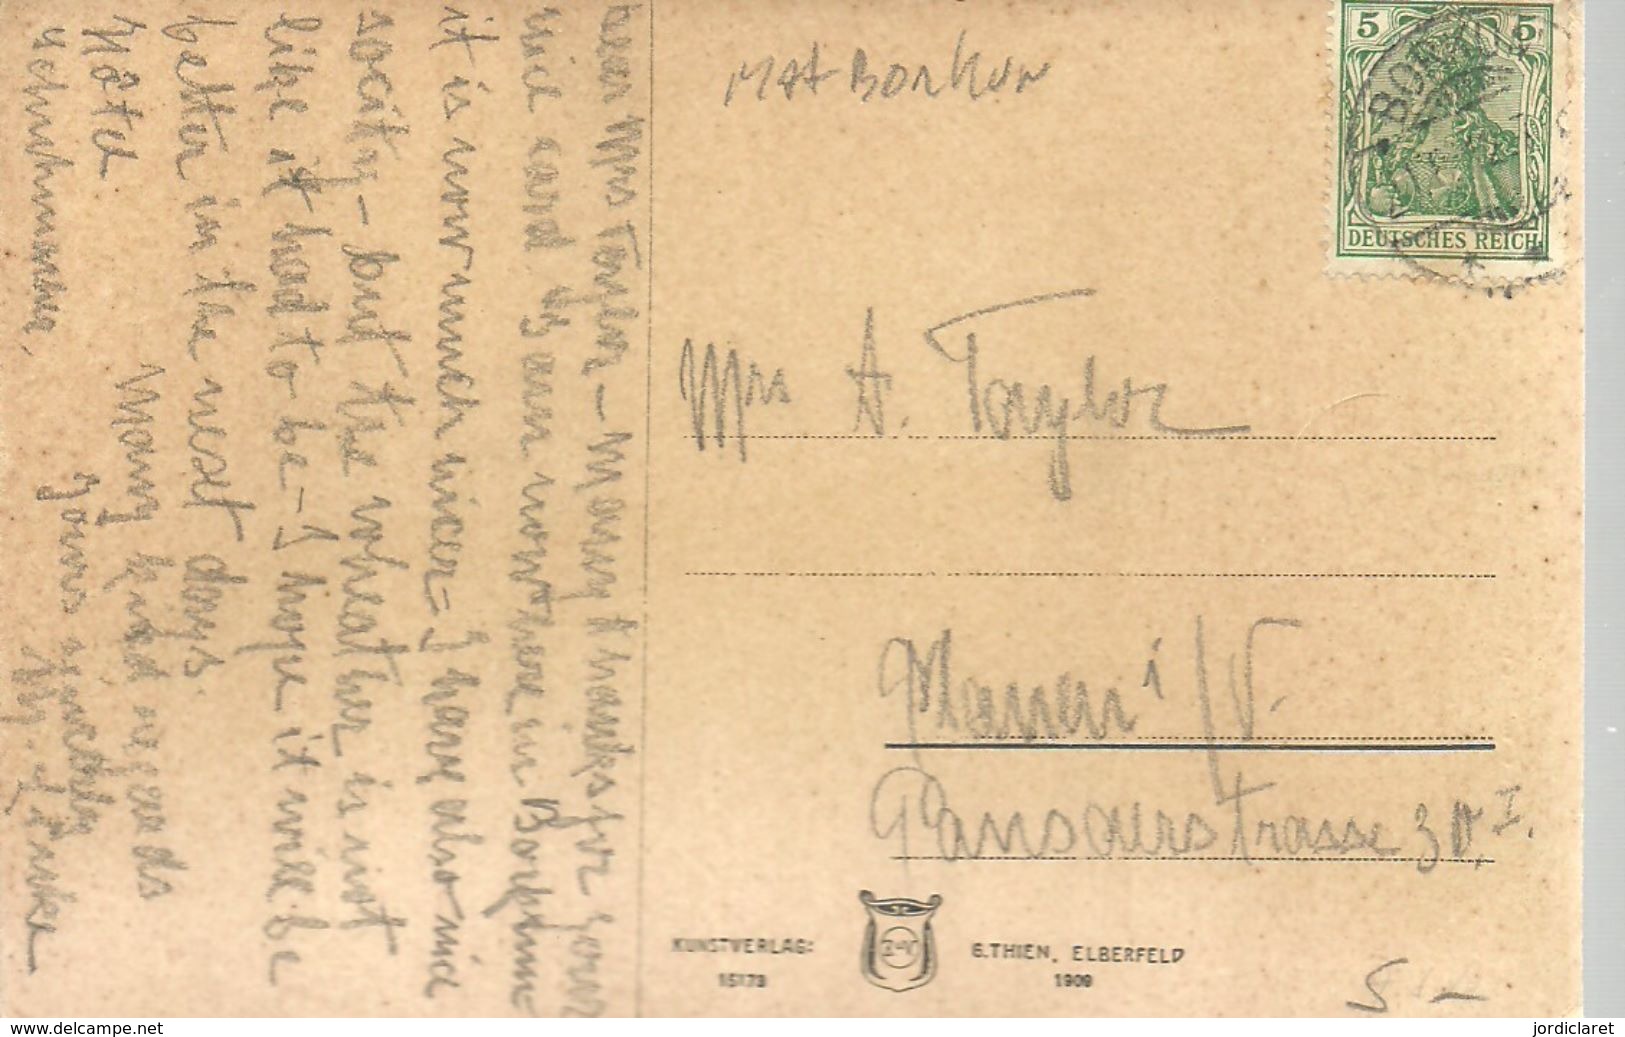 Dear Mrs Tayler – Many thanks for your
nice card. Is our now here in Borkum –
it is now much nicer – I have also nice
socity – but the wheather is not
like it had to be – I hope it will be
better in the next days.
Many kind regards
yours
MAt BORKUM
5 5
BORKUM
DEUTSCHES REICH
Mrs A. Taylor
Plauen i/V.
Pausaerstrasse 30 I.
KUNSTVERLAG:
15173
G. THIEN, ELBERFELD
1909
5 –
www.delcampe.net
jordiclaret